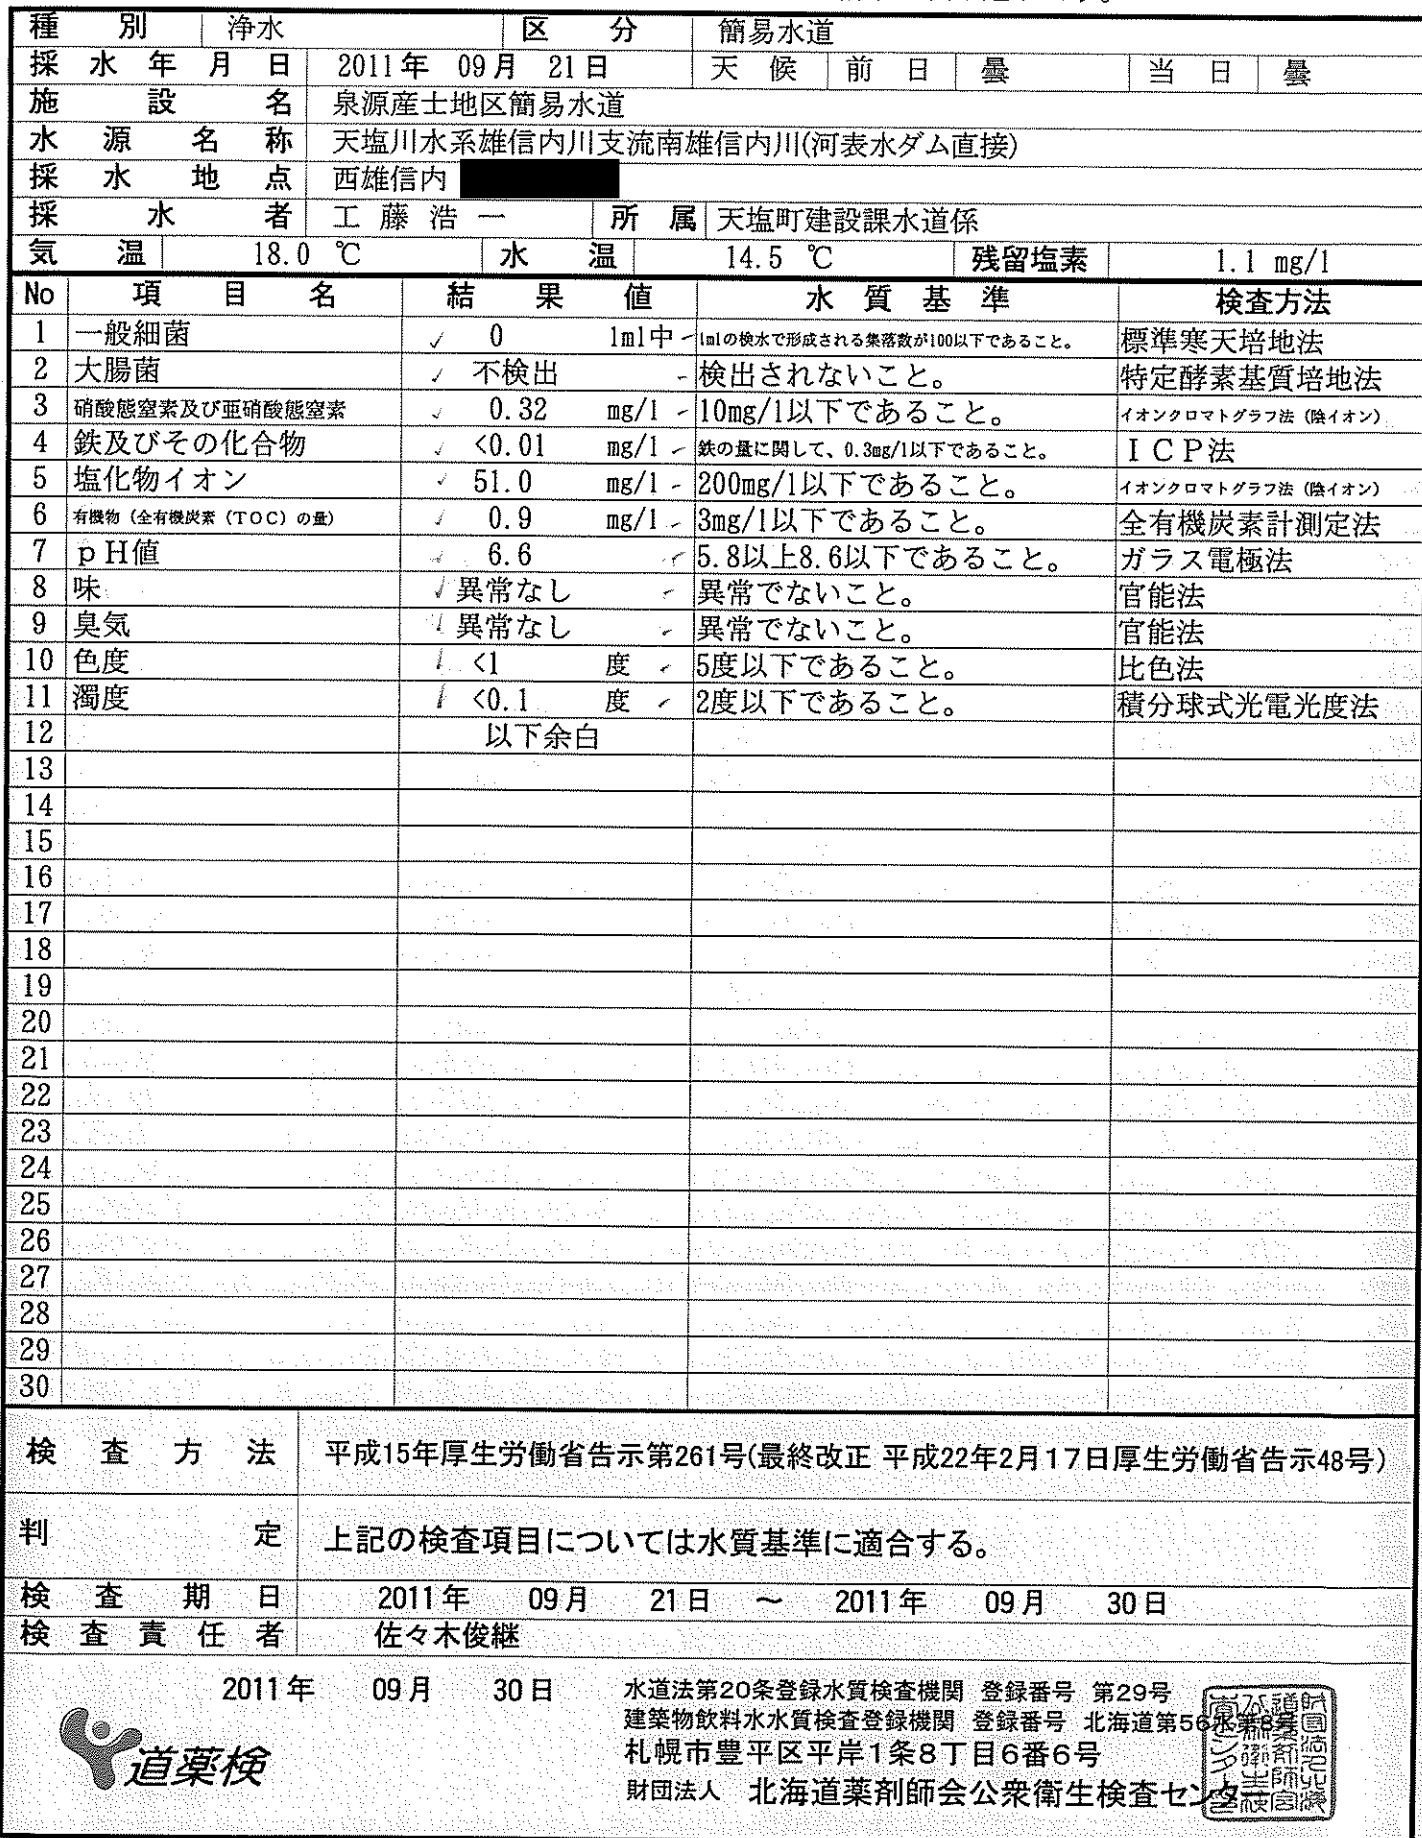 種別 浄水 区分 簡易水道
採水年月日 2011年 09月 21日 天候 前日 曇 当日 曇
施設名 泉源産士地区簡易水道
水源名称 天塩川水系雄信内川支流南雄信内川(河表水ダム直接)
採水地点 西雄信内
採水者 工藤浩一 所属 天塩町建設課水道係
気温 18.0 ℃ 水温 14.5 ℃ 残留塩素 1.1 mg/l
No 項目名 結果値 水質基準 検査方法
1 一般細菌 0 1ml中 1mlの検水で形成される集落数が100以下であること。 標準寒天培地法
2 大腸菌 不検出 検出されないこと。 特定酵素基質培地法
3 硝酸態窒素及び亜硝酸態窒素 0.32 mg/l 10mg/l以下であること。 イオンクロマトグラフ法(陰イオン)
4 鉄及びその化合物 <0.01 mg/l 鉄の量に関して、0.3mg/l以下であること。 ICP法
5 塩化物イオン 51.0 mg/l 200mg/l以下であること。 イオンクロマトグラフ法(陰イオン)
6 有機物(全有機炭素(TOC)の量) 0.9 mg/l 3mg/l以下であること。 全有機炭素計測定法
7 pH値 6.6 5.8以上8.6以下であること。 ガラス電極法
8 味 異常なし 異常でないこと。 官能法
9 臭気 異常なし 異常でないこと。 官能法
10 色度 <1 度 5度以下であること。 比色法
11 濁度 <0.1 度 2度以下であること。 積分球式光電光度法
12 以下余白
13
14
15
16
17
18
19
20
21
22
23
24
25
26
27
28
29
30
検査方法 平成15年厚生労働省告示第261号(最終改正 平成22年2月17日厚生労働省告示48号)
判定 上記の検査項目については水質基準に適合する。
検査期日 2011年 09月 21日 ～ 2011年 09月 30日
検査責任者 佐々木俊継
2011年 09月 30日
水道法第20条登録水質検査機関 登録番号 第29号
建築物飲料水水質検査登録機関 登録番号 北海道第56水第8号
札幌市豊平区平岸1条8丁目6番6号
財団法人 北海道薬剤師会公衆衛生検査センター
道薬検